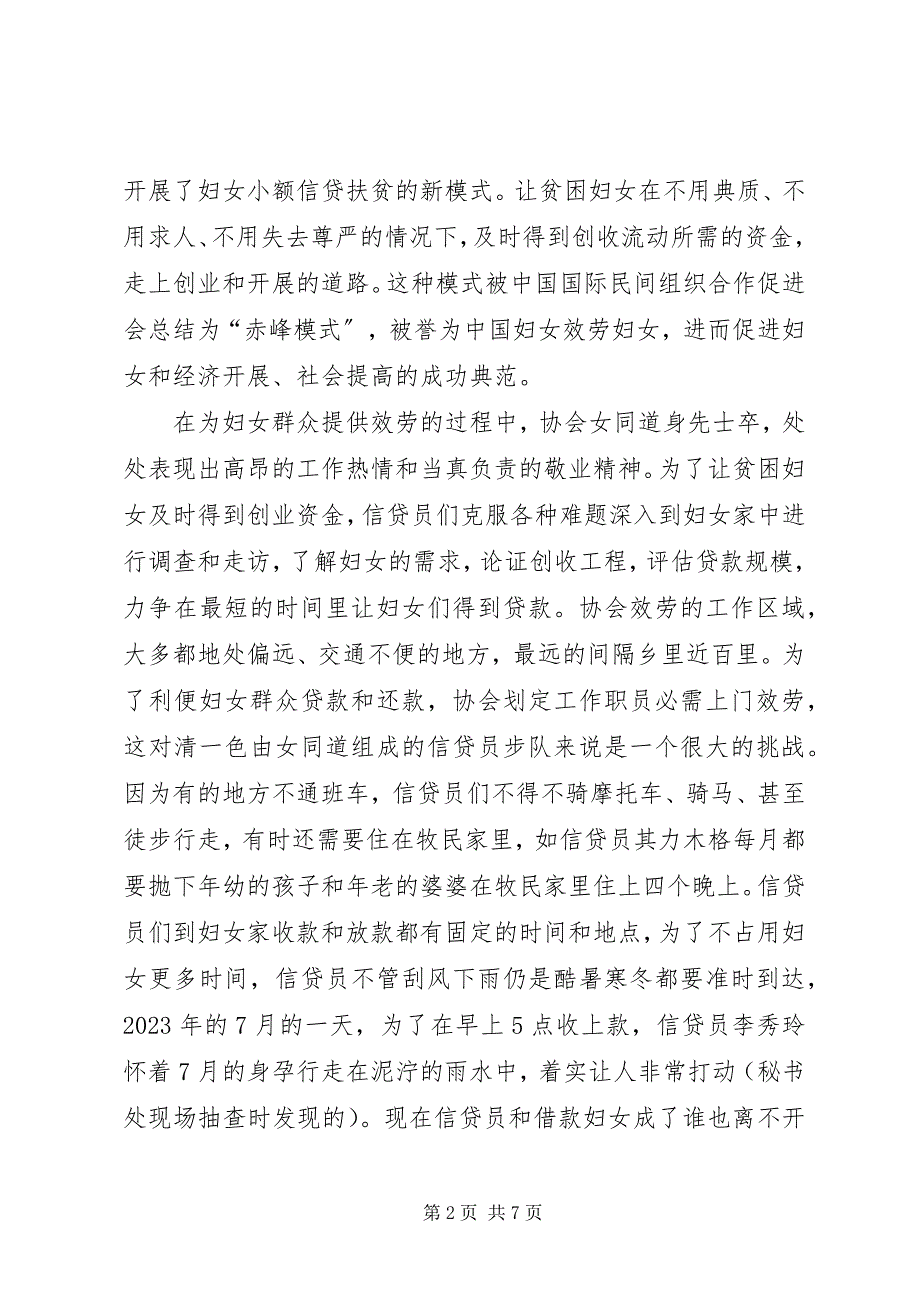 开展了妇女小额信贷扶贫的新模式。让贫困妇女在不用典质、不
用求人、不用失去尊严的情况下，及时得到创收流动所需的资金，
走上创业和开展的道路。这种模式被中国国际民间组织合作促进
会总结为“赤峰模式〞，被誉为中国妇女效劳妇女，进而促进妇
女和经济开展、社会提高的成功典范。
在为妇女群众提供效劳的过程中，协会女同道身先士卒，处
处表现出高昂的工作热情和当真负责的敬业精神。为了让贫困妇
女及时得到创业资金，信贷员们克服各种难题深入到妇女家中进
行调查和走访，了解妇女的需求，论证创收工程，评估贷款规模，
力争在最短的时间里让妇女们得到贷款。协会效劳的工作区域，
大多都地处偏远、交通不便的地方，最远的间隔乡里近百里。为
了利便妇女群众贷款和还款，协会划定工作职员必需上门效劳，
这对清一色由女同道组成的信贷员步队来说是一个很大的挑战。
因为有的地方不通班车，信贷员们不得不骑摩托车、骑马、甚至
徒步行走，有时还需要住在牧民家里，如信贷员其力木格每月都
要抛下年幼的孩子和年老的婆婆在牧民家里住上四个晚上。信贷
员们到妇女家收款和放款都有固定的时间和地点，为了不占用妇
女更多时间，信贷员不管刮风下雨仍是酷暑寒冬都要准时到达，
2023 年的 7 月的一天，为了在早上 5 点收上款，信贷员李秀玲
怀着 7 月的身孕行走在泥泞的雨水中，着实让人非常打动（秘书
处现场抽查时发现的）。现在信贷员和借款妇女成了谁也离不开
第 2 页 共 7 页